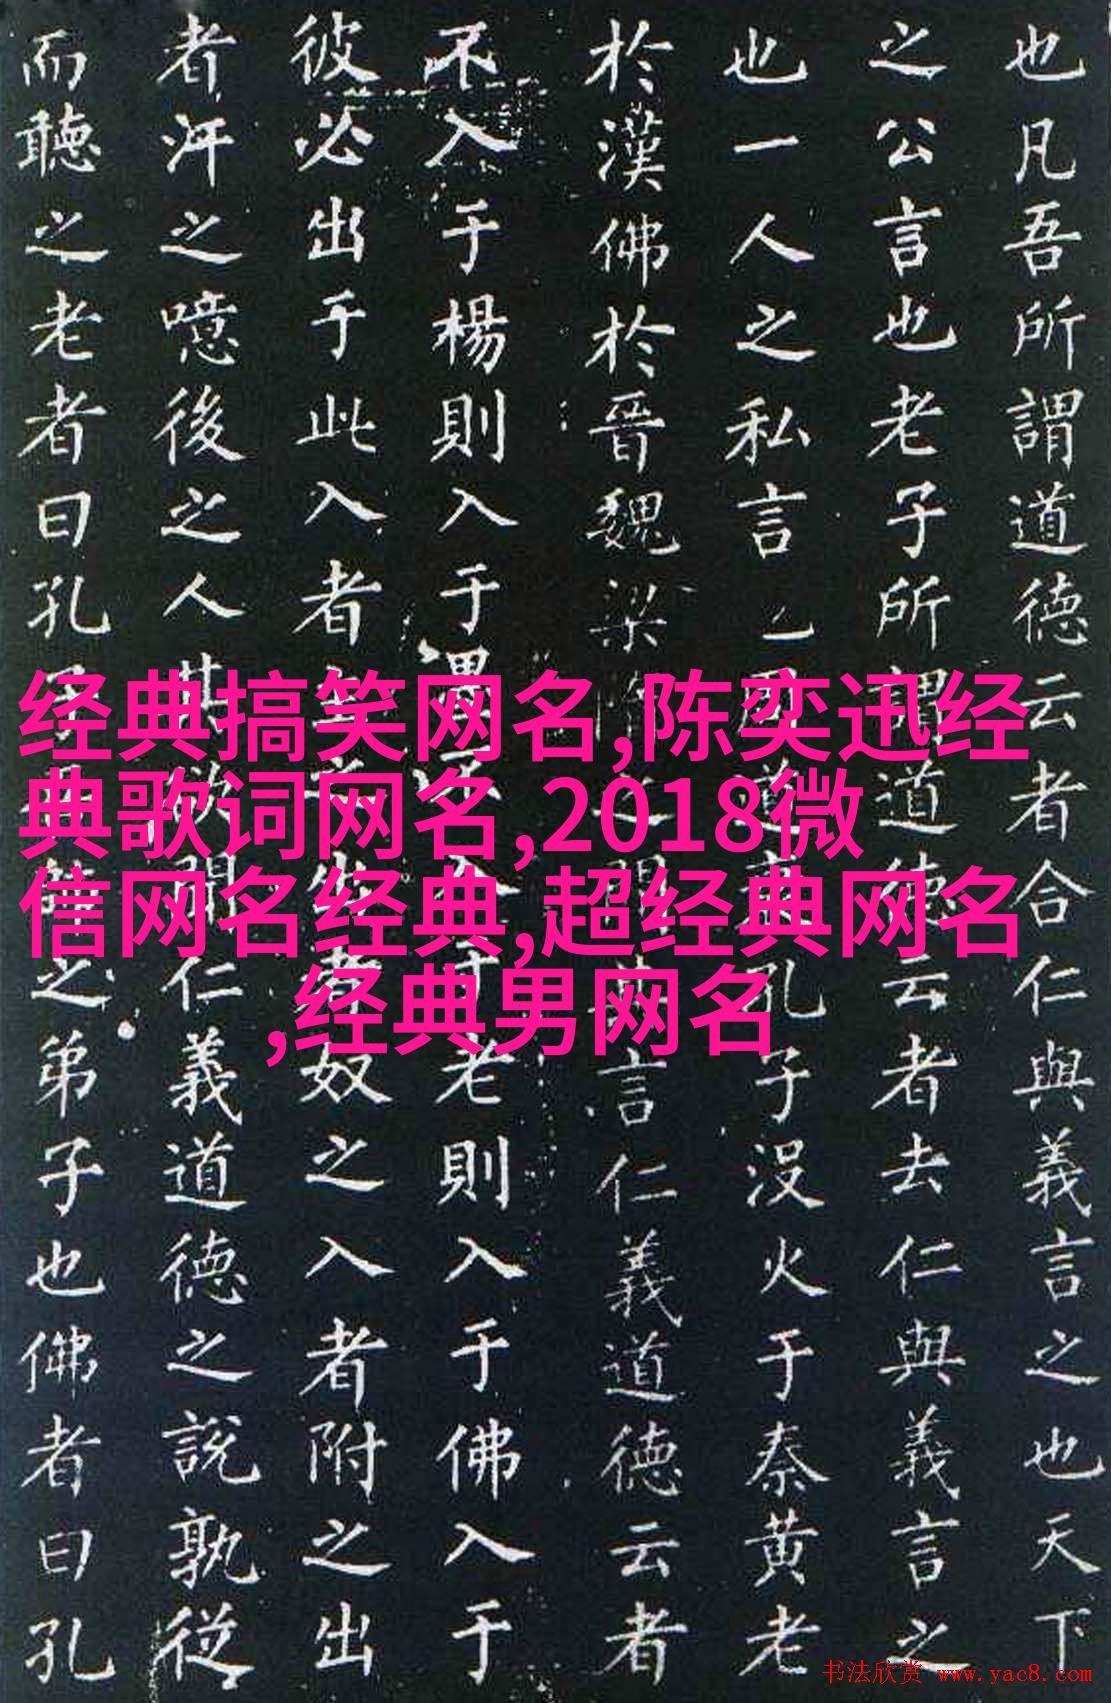 也凡吾所謂道德云者合仁與義言之也天下
之公言也老子所謂道德云者去仁與義言之
也一人之私言周道衰孔子没火于秦黄老
於漢佛於晉魏梁隋之間其言仁義道德云者
不入于楊則入于墨不入于老則入于佛入于
彼必出于此入者主之出者奴之入者附之出
者汙之噫後之人其欲聞仁義道德之說孰從
而聽之老者曰孔子吾師之弟子也佛者曰孔
经典搞笑网名,陈奕迅经
典歌词网名,2018微
信网名经典,超经典网名
,经典男网名
书法欣赏 www.yac8.com